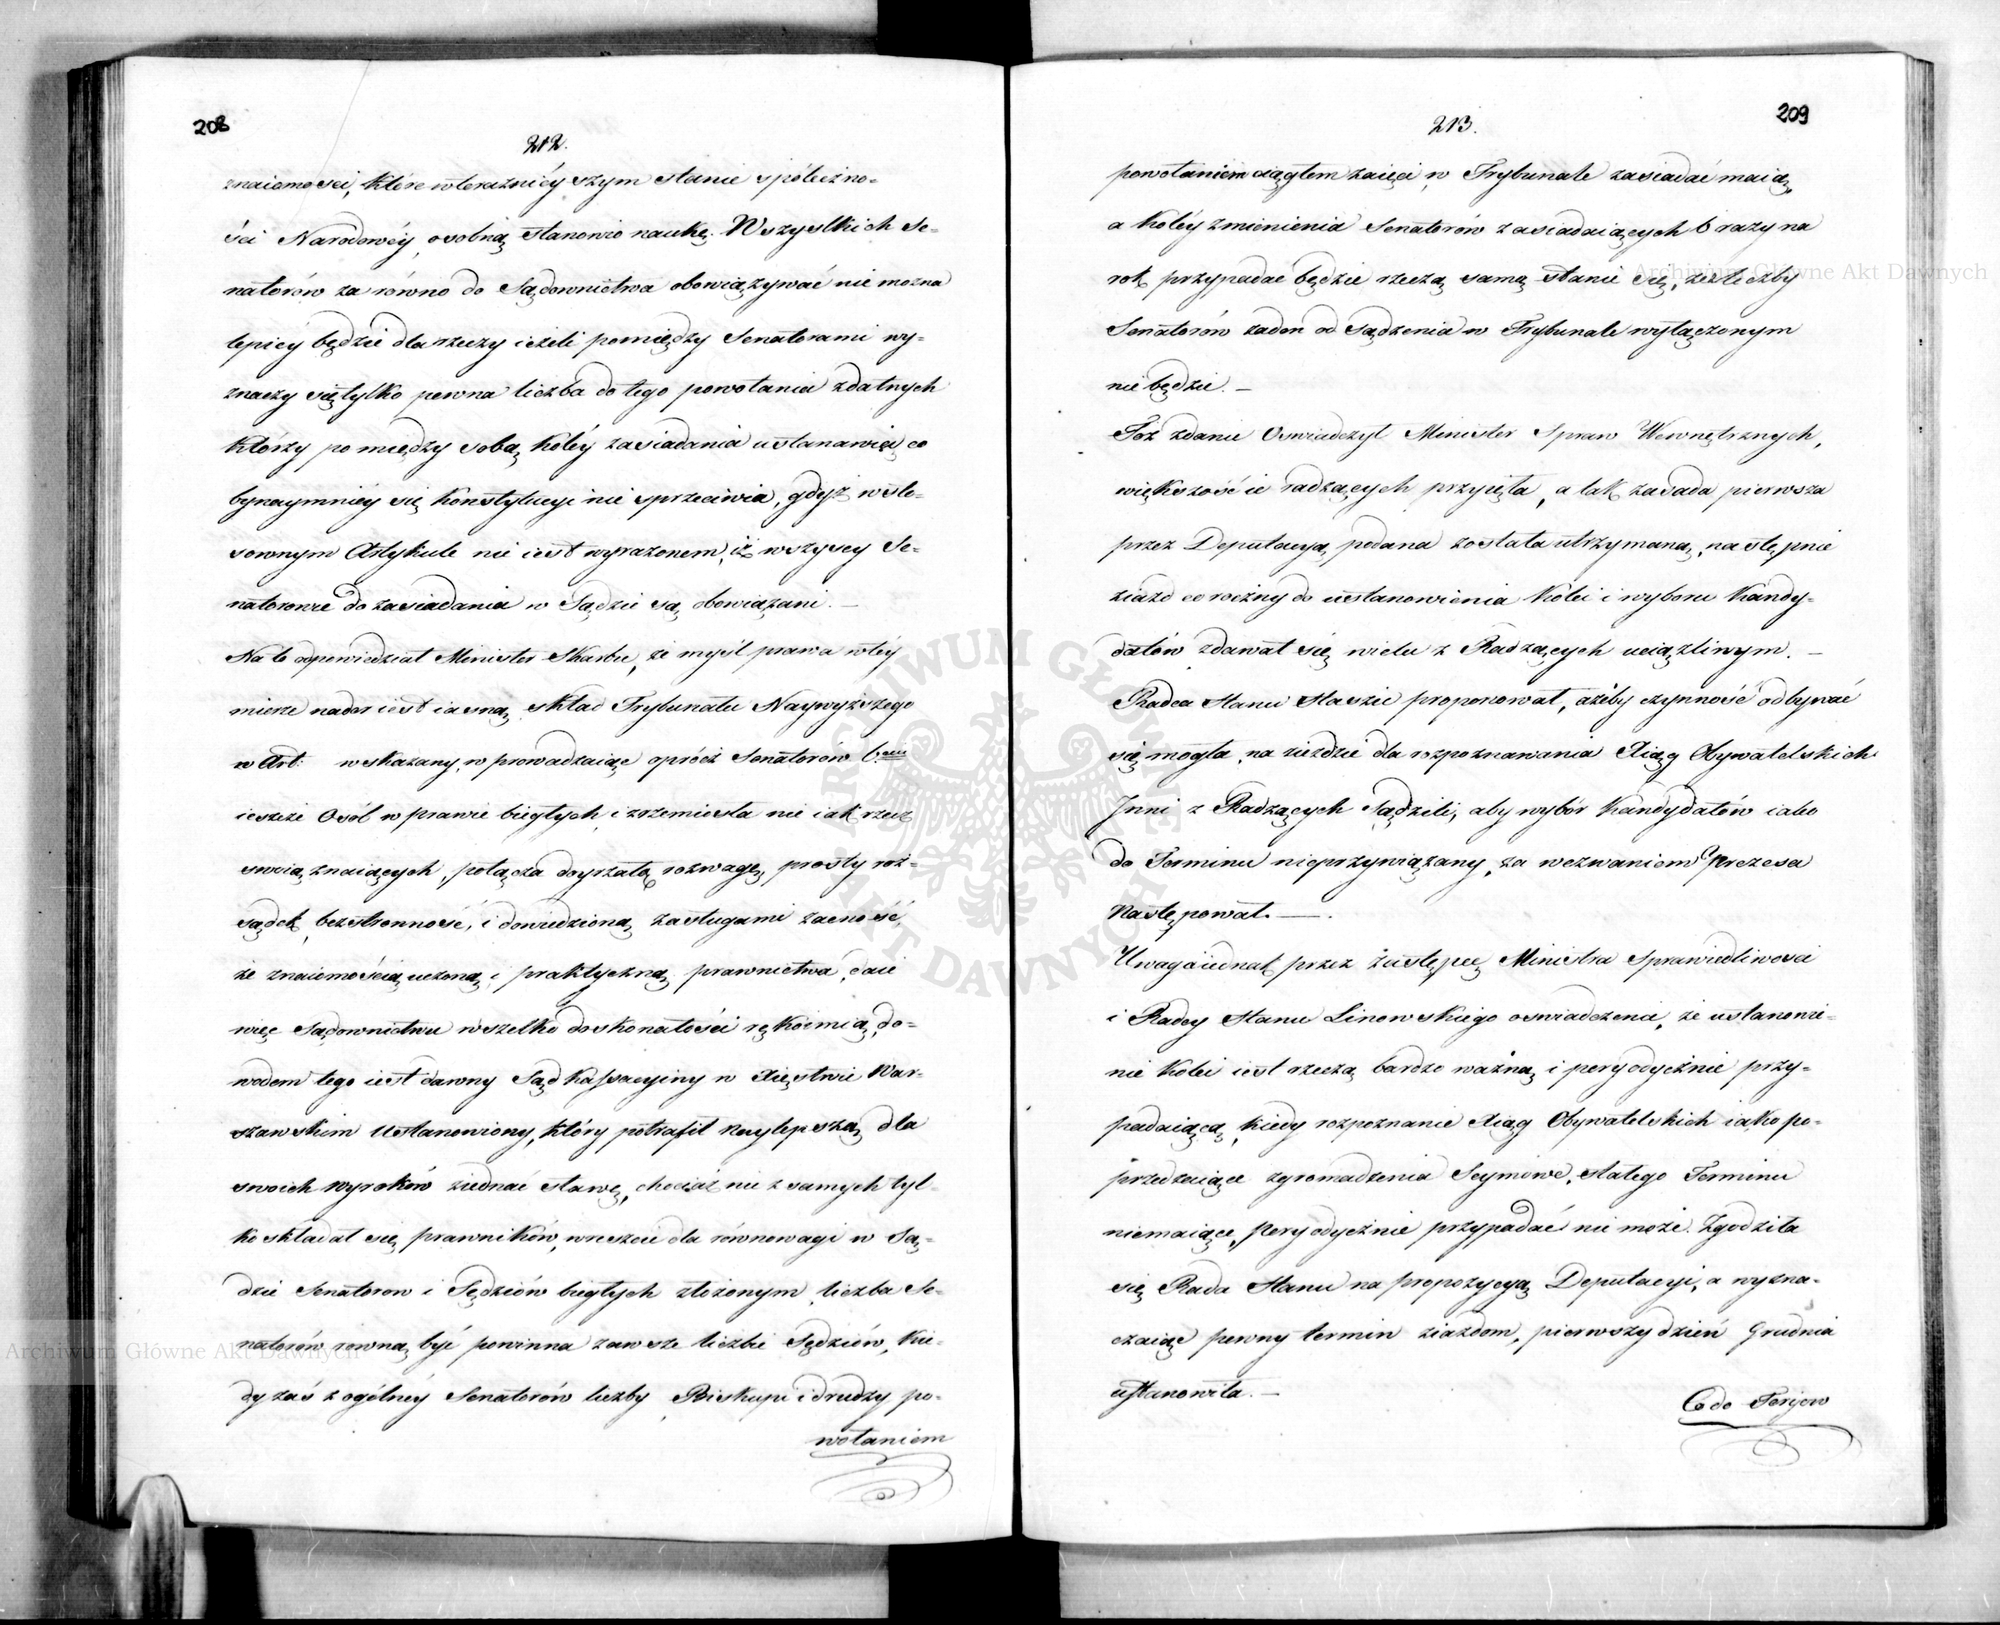 208
212.
znaiomosci, które w teraznieyszym stanie społeczno-
ści Narodowéy, osobną stanowio naukę. Wszystkich Se-
natorów za równo do Sądownictwa obowiązywać nie mozna
lepiéy będzie dla rzeczy ieżeli pomiędzy Senatorami wy-
znaczy się tylko pewna liczba do tego powołania zdatnych
którzy po między sobą koléy zasiadania ustanawią co
bynaymniéy się Konstytucyi nie sprzeciwia, gdyż w sto-
sownym Artykule nie iest wyrazonem, iż wszyscy Se-
natorowie do zasiadania w Sądzie są obowiązani. —
Na to odpowiedział Minister Skarbu, że myśl prawa w téy
mierze nader iest iasną, skład Trybunału Naywyższego
w Art: wskazany, wprowadzaiąc oprócz Senatorów
ieszcze Osób w prawie biegłych, i z rzemiosła nie iak rzecz
swoią znaiących, połącza doyrzałą rozwagę, prosty roz-
sądek, bezstronność, i dowiedzioną zasługami zacność,
ze znaiomością uczoną i praktyczną prawnictwa, daie
więc Sądownictwu wszelko doskonałości rękoimią, do-
wodem tego iest dawny Sąd Kassacyiny w Xięstwie War-
szawskim ustanowiony, który potrafił naylepszą dla
swoich wyroków ziednać sławę, chociaż nie z samych tyl-
ko składał się prawników, wreszcie dla równowagi w Są-
dzie Senatorow i Sędziów biegłych złożonym liczba Se-
natorów rowną być powinna zawsze liczbie Sędziów, Kie-
dy zaś z ogólnéy Senatorów liczby Biskupi i drudzy po-
wołaniem
209
213.
powołaniem ciągłem zaięci w Trybunale zasiadać maią,
a koléy zmienienia Senatorów zasiadaiących 6 razy na
rok przypadac będzie rzeczą samą stanie się, że z liczby
Senatorów zaden od sądzenia w Trybunale wyłączonym
nie będzie. —
Toż zdanie Oswiadczył Minister Spraw Wewnętrznych,
większość ie radzących przyięła, a tak zasada pierwsza
przez Deputacyą podana została utrzymaną, następnie
ziazd coroczny do ustanowienia Kolei i wyboru Kandy-
datów zdawał się wielu z Radzących uciązliwym. —
Radca Stanu Staszic proponował, ażeby czynność odbywać
się mogła, na zieździe dla rozpoznawania Xiąg Obywatelskich
Inni z Radzących Sądzili, aby wybór Kandydatów iako
do Terminu nieprzywiązany, za wezwaniem Prezesa
następował. — .
Uwaga iednak przez Zastępcę Ministra Sprawiedliwosci
i Radcy Stanu Linowskiego oswiadczona, że ustanowie-
nie Kolei iest rzeczą bardzo ważną i peryodycznie przy-
padaiącą, kiedy rozpoznanie Xiąg Obywatelskich iako po-
przedzaiące zgromadzenia Seymowe, stałego Terminu
niemaiące, peryodycznie przypadać nie może. Zgodziła
się Rada Stanu na propozycyą Deputacyi, a wyzna-
czaiąc pewny termin ziazdom, pierwszy dzień Grudnia
ustanowiła. —
Co do
Archiwum Główne Akt Dawnych
Archiwum Główne Akt Dawnych
ARCHIWUM GŁÓWNE AKT DAWNYCH